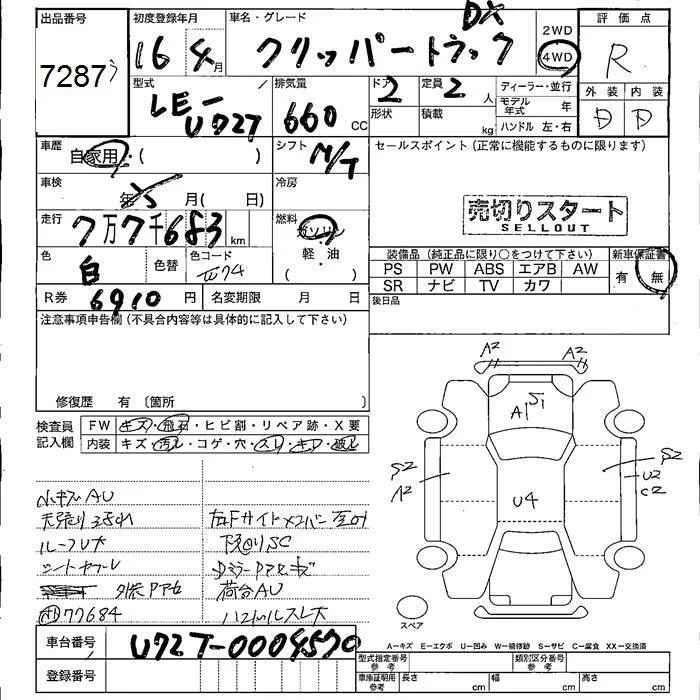 出品番号 初度登録年月 車名・グレード 2WD 評価点
7287 16 4月 クリッパートラック DX 4WD R
型式 排気量 ドア 定員 ディーラー・並行 外装 内装
LE-U72T 660 CC 2 2 人 モデル年式 年 D D
形状 積載 kg ハンドル 左・右
車歴 自家用・( ) シフト M/T セールスポイント(正常に機能するものに限ります)
車検 年 月( 日) 冷房
売切りスタート
SELLOUT
走行 7万7千683 km 燃料 ガソリン 軽・油 ( )
色 白 色替 色コード
装備品(純正品に限り○をつけて下さい) 新車保証書
PS PW ABS エアB AW 有 無
SR ナビ TV カワ
R券 6910円 名変期限 月 日 後日品
注意事項申告欄(不具合内容等は具体的に記入して下さい)
修復歴 有〔箇所 〕
検査員記入欄 FW キズ・飛石・ヒビ割・リペア跡・X要
内装 キズ・汚レ・コゲ・穴・スリ・キレ・破レ
A2 A2
A1 S1
S2 A2 U4 S2 U2 C2
小キズAU
ルーフU大
荷台AU
77684
スペア
車台番号 U72T-0004570
登録番号
A-キズ E-エクボ U-凹み W-補修跡 S-サビ C-腐食 XX-交換済
型式指定番号 参考 類別区分番号 参考
車庫証明用 参考 長さ cm 幅 cm 高さ cm